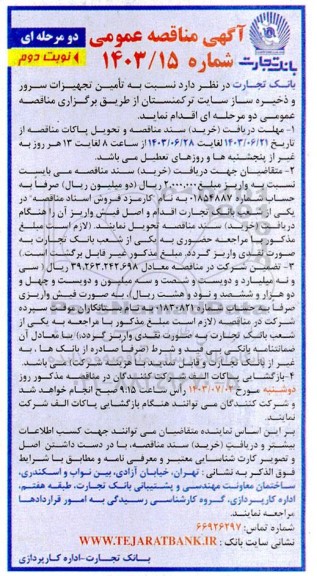 آگهی مناقصه عمومی
شماره ۱۴۰۳/۱۵
دو مرحله ای
نوبت دوم
بانک تجارت
بانک تجارت در نظر دارد نسبت به تأمین تجهیزات سرور
و ذخیره ساز سایت ترکمنستان از طریق برگزاری مناقصه
عمومی دو مرحله ای اقدام نماید.
۱- مهلت دریافت (خرید) سند مناقصه و تحویل پاکات مناقصه از
تاریخ ۱۴۰۳/۰۶/۲۱ لغایت ۱۴۰۳/۰۶/۲۸ از ساعت ۸ لغایت ۱۳ هر روز به
غیر از پنجشنبه ها و روزهای تعطیل می باشد.
۲- متقاضیان جهت دریافت (خرید) سند مناقصه می بایست
نسبت به واریز مبلغ ۲.۰۰۰.۰۰۰ ریال (دو میلیون ریال) صرفاً به
حساب شماره ۰۱۸۵۴۸۸۷ به نام "کارمزد فروش اسناد مناقصه" در
یکی از شعب بانک تجارت اقدام و اصل فیش واریزی آن را هنگام
دریافت (خرید) سند مناقصه تحویل نمایند. (لازم است مبلغ
مذکور با مراجعه حضوری به یکی از شعب بانک تجارت به
صورت نقدی واریز گردد. مبلغ مذکور غیر قابل برگشت است)
۳- تضمین شرکت در مناقصه معادل ۳۹.۲۶۳.۲۴۲.۶۹۸ ریال (سی
و نه میلیارد و دویست و شصت و سه میلیون و دویست و چهل و
دو هزار و ششصد و نود و هشت ریال)، به صورت فیش واریزی
صرفاً به حساب شماره ۰۱۱۸۳۰۸۲۱ به نام "بستانکاران موقت سپرده
شرکت در مناقصه" (لازم است مبلغ مذکور با مراجعه به یکی از
شعب بانک تجارت به صورت نقدی واریز گردد.) یا معادل آن
ضمانتنامه بانکی بی قید و شرط (صرفاً صادره از بانک ها، به
غیر از بانک تجارت و قابل تمدید تا هر مدت) می باشد.
۴- بازگشایی پاکات الف شرکت کنندگان در مناقصه مذکور روز
دوشنبه مورخ ۱۴۰۳/۰۷/۰۲ رأس ساعت ۹:۱۵ صبح انجام خواهد شد
و شرکت کنندگان می توانند هنگام بازگشایی پاکات الف شرکت
نمایند.
بر این اساس نماینده متقاضیان می توانند جهت کسب اطلاعات
بیشتر و دریافت (خرید) سند مناقصه، با در دست داشتن اصل
و تصویر کارت شناسایی معتبر و معرفی نامه و مطابق با شرایط
فوق الذکر به نشانی: تهران، خیابان آزادی، بین نواب و اسکندری،
ساختمان معاونت مهندسی و پشتیبانی بانک تجارت، طبقه هفتم،
اداره کارپردازی، گروه کارشناسی رسیدگی به امور قراردادها
مراجعه نمایند.
شماره تماس: ۶۶۹۲۶۲۹۷
نشانی سایت بانک: WWW.TEJARATBANK.IR
بانک تجارت-اداره کارپردازی